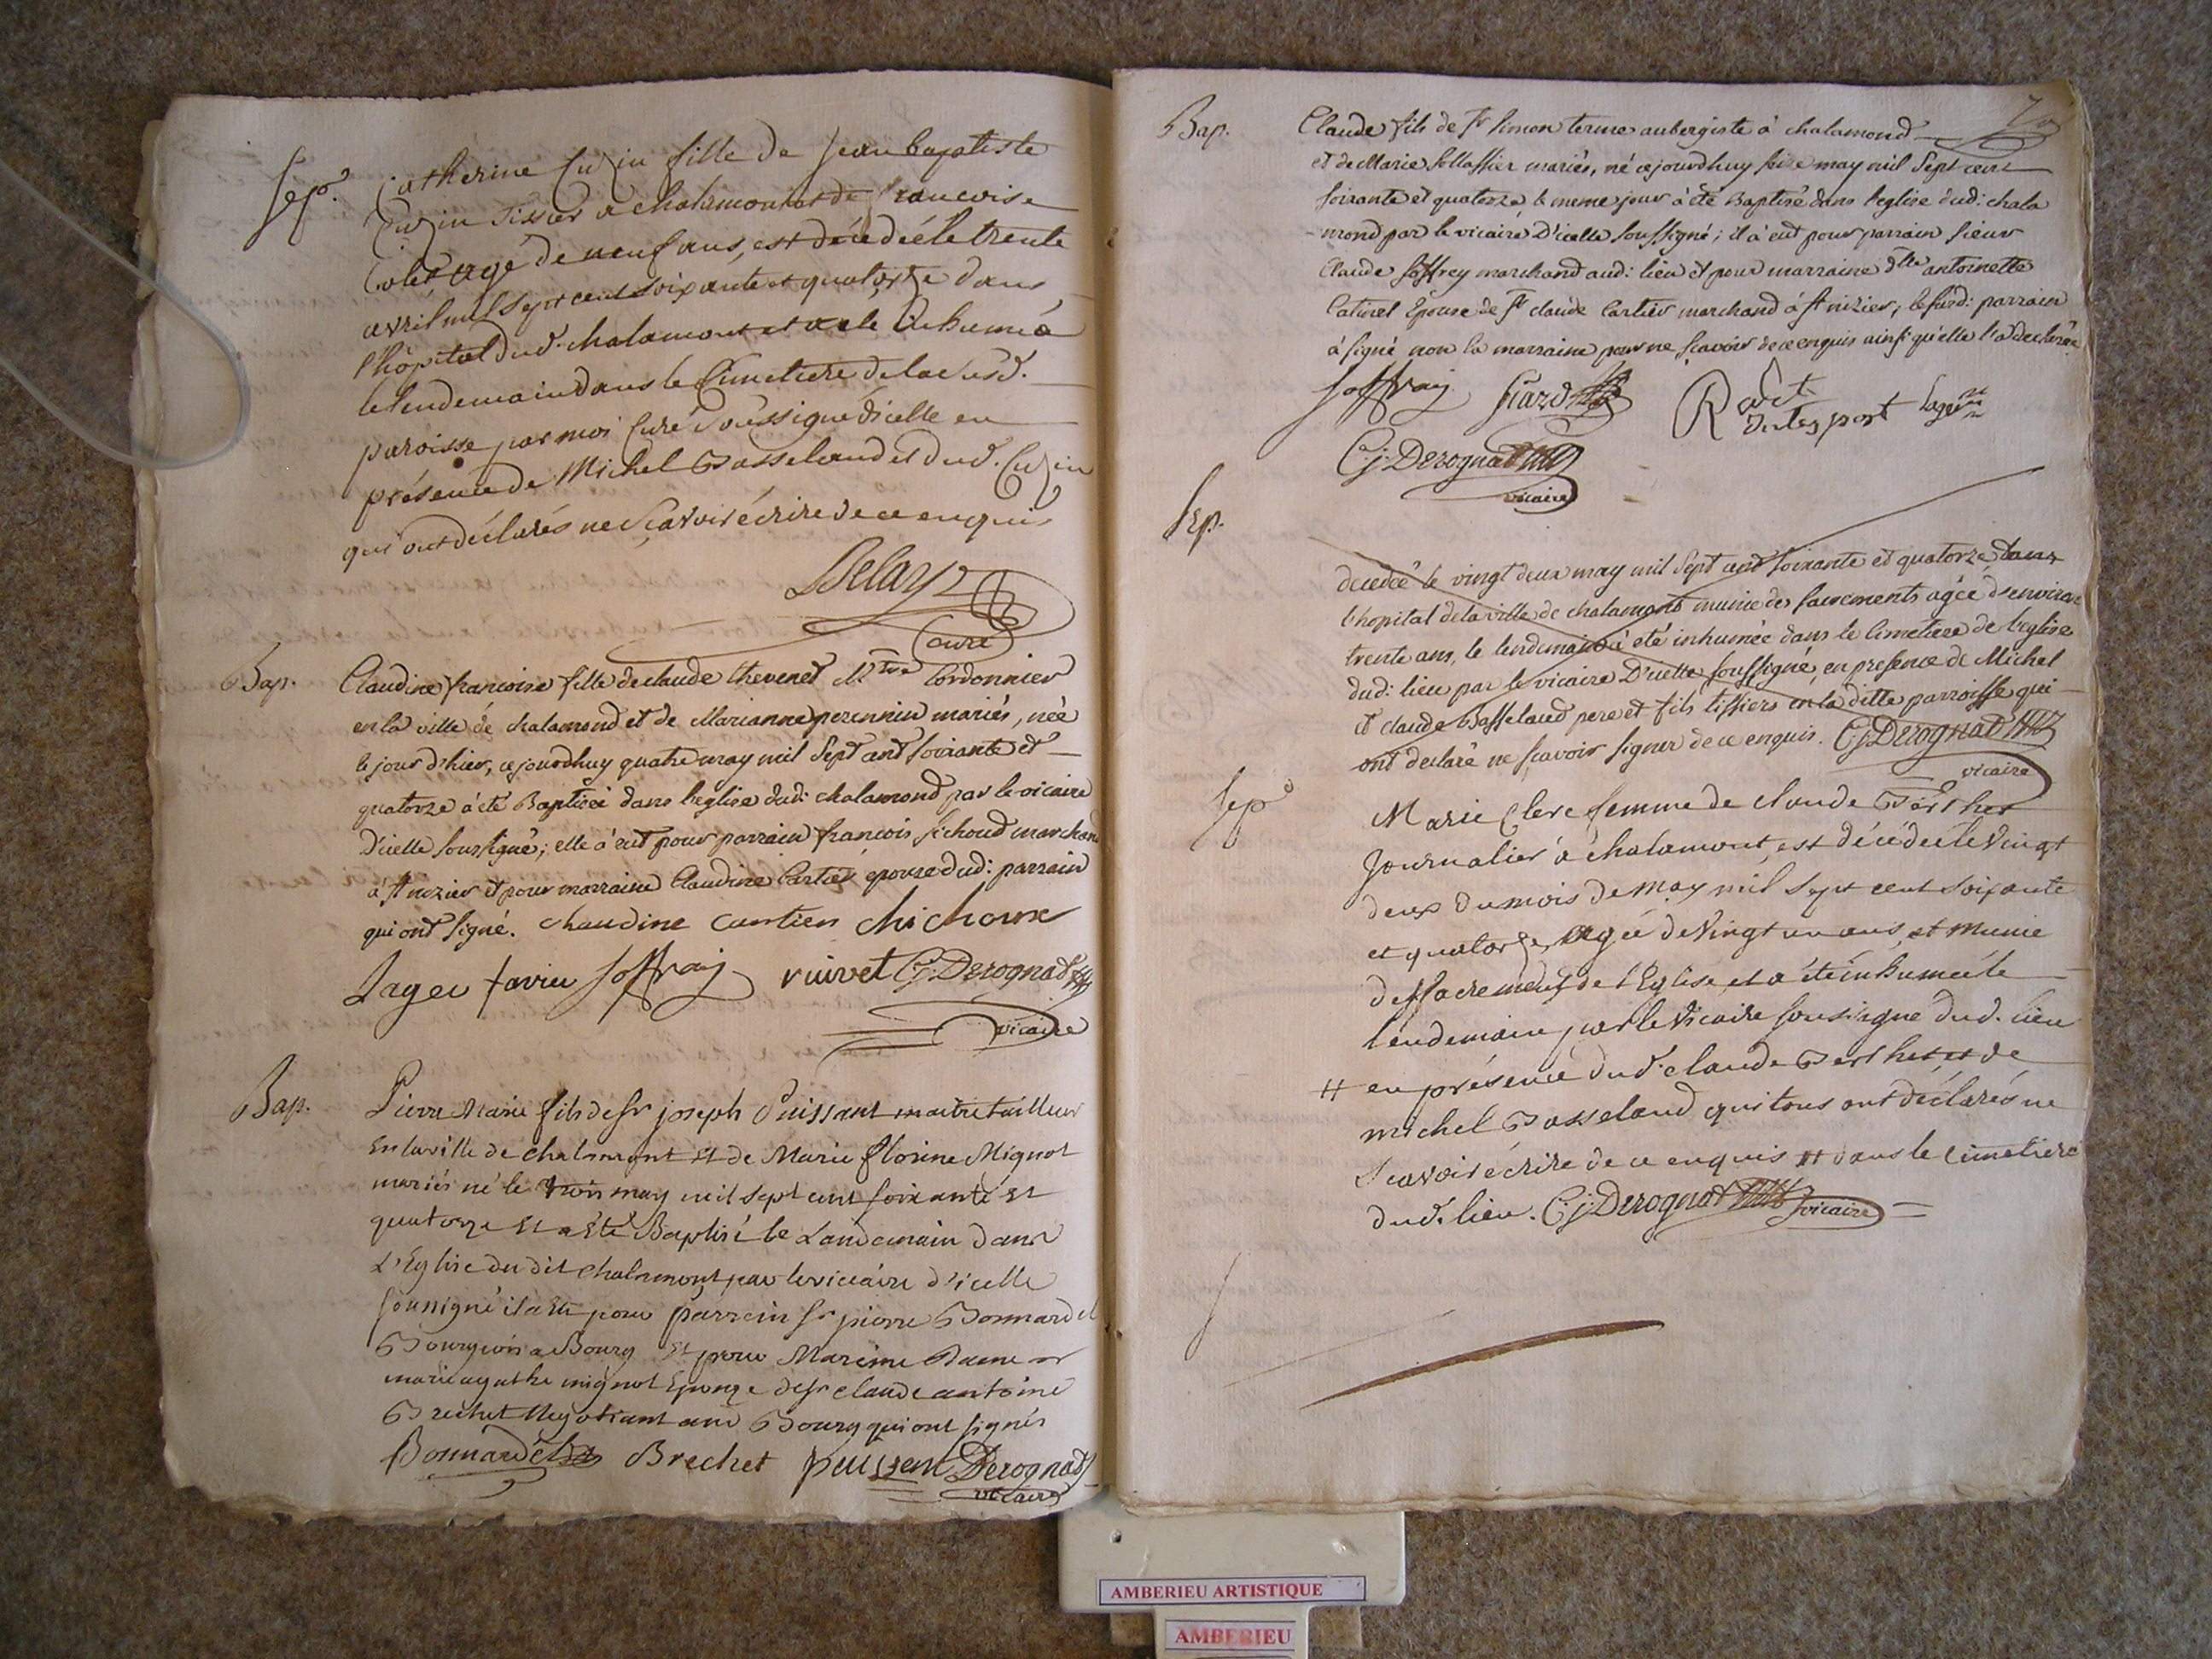 Sep.
Catherine Cuzin fille de Jean baptiste
Cuzin Tissier a chalamont et de francoise
Colet agé de neuf ans, est décédée le trente
avril mil sept cent soixante et quatorze dans
l'hôpital dud. chalamont et a eté inhumée
le lendemain dans le Cimetiere de la susd.
paroisse par moi Curé soussigné d'icelle en
présence de Michel Basseland et dud. Cuzin
qui ont déclarés ne sçavoir écrire de ce enquis
Delaye
Curé
Bap.
Claudine francoise fille de claude thevenet Mtre Cordonnier
en la ville de chalamond et de Marianne perennin mariés, née
le jour d'hier, cejourdhuy quatre may mil Sept cent soixante et
quatorze à été Baptisée dans l'eglise dud: chalamond par le vicaire
d'icelle soussigné; elle à eut pour parrain francois sichoud marchand
a st nizier et pour marraine Claudine Cartier epouse dud: parrain
qui ont signé. chaudine cartier chichoux
Lager favier Joffray vuivet C.j. Derognat
vicaire
Bap.
Pierre Marie fils de sr joseph Puissant maitre tailleur
En la ville de chalamont Et de Marie florine Mignot
mariés né le trois may mil sept cent soixante Et
quatorze Et a Eté Baptisé le Landemain dans
L'Eglise du dit chalamont par le vicaire d'icelle
soussigné il a Eu pour parrein sr pierre Bonnardel
Bourgeois a Bourg Et pour Mareine Dame
marie agathe mignot Epouze de sr claude antoine
Brechet Negotiant aud Bourg qui ont signés
Bonnardel Brechet puissent Derognat
vicaire
70
Bap.
Claude fils de Sr Simon terme aubergiste à chalamond
et de Marie mariés, né cejourdhuy seize may mil Sept cent
soixante et quatorze, le meme jour à été Baptisé dans l'eglise dud: chala
mond par le vicaire D'icelle soussigné; il à eut pour parrain sieur
Claude Joffrey marchand aud: lieu et pour marraine dlle antoinette
Catinet Epouse de Sr claude Cartier marchand à st nizier; le susd: parrain
à signé non la marraine pour ne scavoir de ce enquis ainsi qu'elle l'a declarée
Joffray Girard Lager
C.j. Derognat
vicaire
Sep.
decedée le vingt deux may mil Sept cent soixante et quatorze dans
l'hopital de la ville de chalamont munie des sacrements agée d'environ
trente ans, le lendemain à été inhumée dans le cimetiere de l'eglise
dud: lieu par le vicaire D'icelle soussigné, en presence de Michel
et claude Basseland pere et fils tissiers en la ditte parroisse qui
ont declaré ne scavoir signer de ce enquis. C.j. Derognat
vicaire
Sep.
Marie Clerc femme de claude Berthet
Journalier à chalamont, est décédée le Vingt
deux du mois de may mil sept cent soixante
et quatorze, agée de vingt un ans, et munie
des sacrements de l'Eglise et a été inhumée le
lendemain par le Vicaire soussigné dud. lieu
# en présence dud. claude Berthet, et de
michel Basseland qui tous ont déclarés ne
scavoir écrire de ce enquis # dans le cimetiere
dud. lieu. C.j. Derognat vicaire
AMBERIEU ARTISTIQUE
AMBERIEU